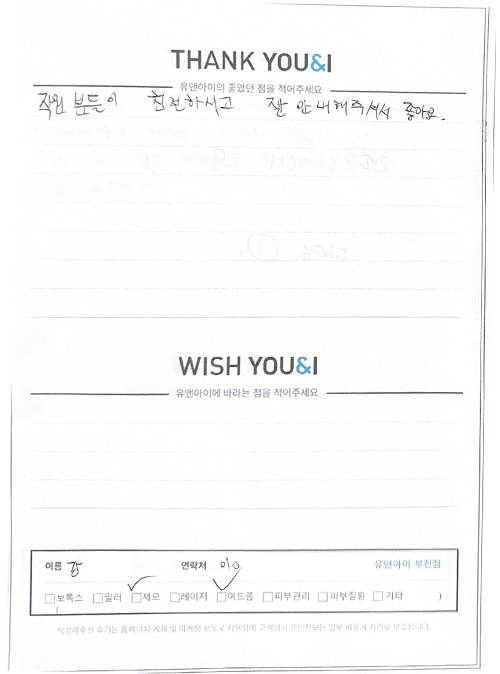 THANK YOU&I
유앤아이의 좋았던 점을 적어주세요
직원 분들이 친절하시고 잘 안내해주셔서 좋아요.
WISH YOU&I
유앤아이에 바라는 점을 적어주세요
이름 연락처 010 유앤아이 부천점
보톡스 필러 제모 레이저 여드름 피부관리 피부질환 기타 )
(
작성해주신 후기는 홈페이지 게재 및 마케팅 용도로 사용되며 고객님의 개인정보는 일부 비공개 처리로 보호됩니다.